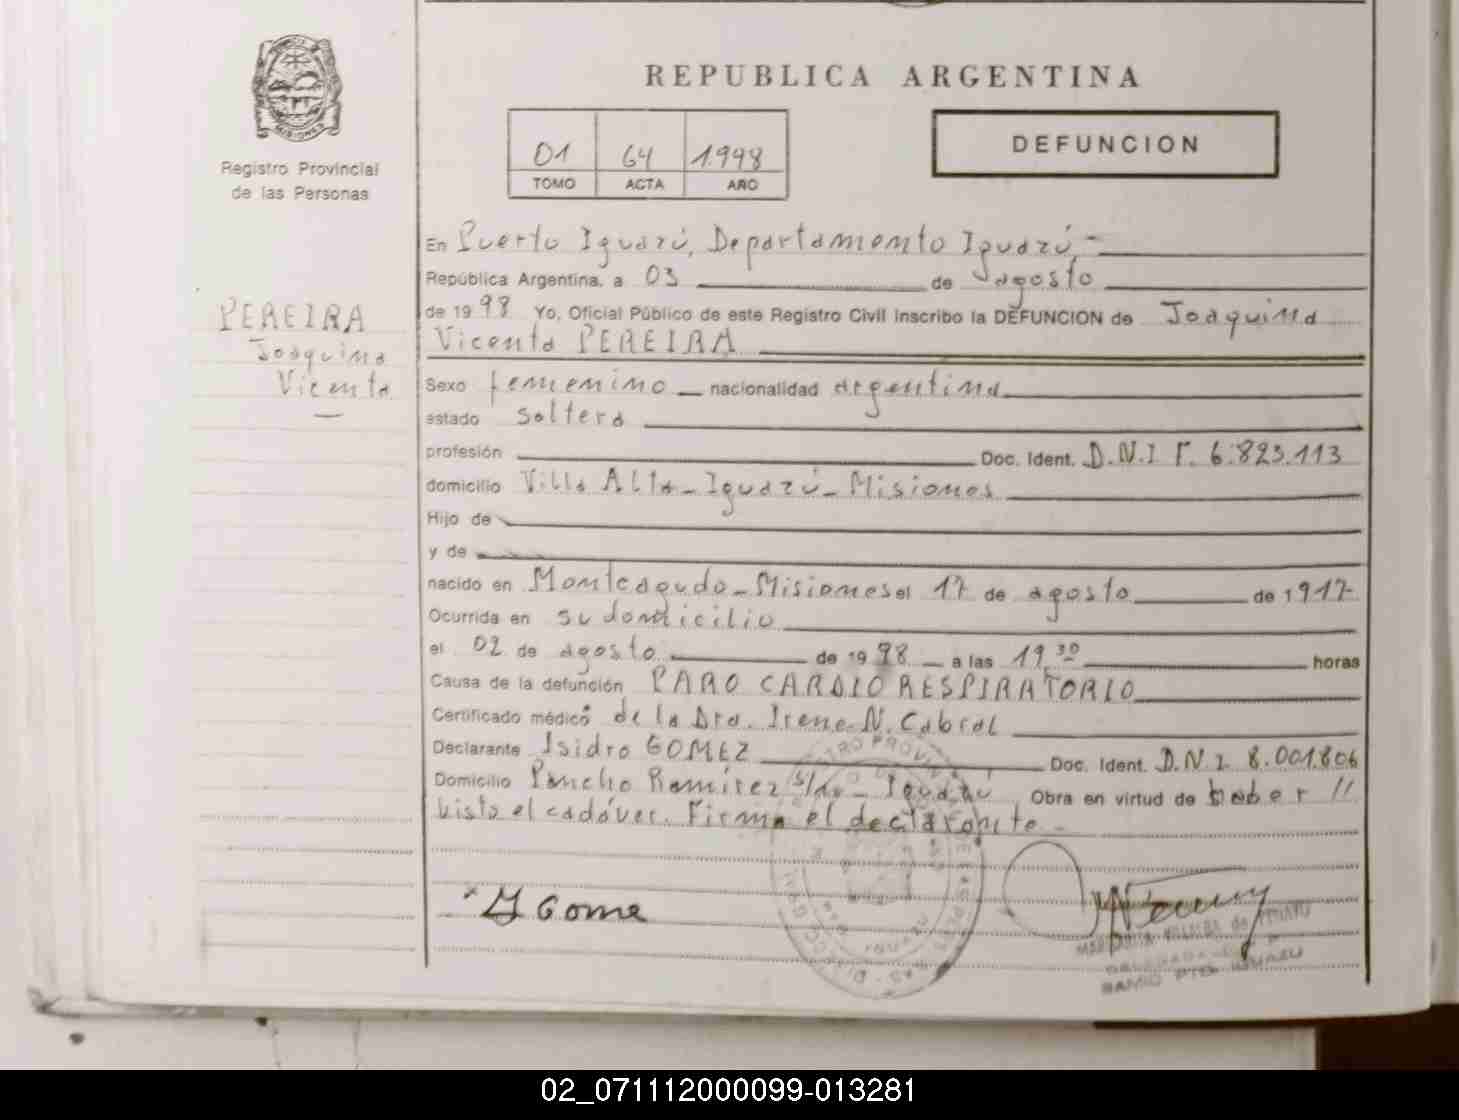 REPUBLICA ARGENTINA
MISIONES
Registro Provincial
de las Personas
01 64 1.998
TOMO ACTA AÑO
DEFUNCION
En Puerto Iguazú, Departamento Iguazú.-
República Argentina, a 03 de agosto
de 1998 Yo, Oficial Público de este Registro Civil inscribo la DEFUNCION de Joaquina
Vicenta PEREIRA
PEREIRA
Joaquina
Vicenta
Sexo femenino nacionalidad argentina
estado soltera
profesión Doc. Ident. D.N.I F. 6.823.113
domicilio Villa Alta - Iguazú - Misiones
Hijo de
y de
nacido en Monteagudo - Misiones el 17 de agosto de 1917
Ocurrida en su domicilio
el 02 de agosto de 1998 a las 19,30 horas
Causa de la defunción PARO CARDIO RESPIRATORIO
Certificado médico de la Dra. Irene N. Cabral
Declarante Isidro GOMEZ Doc. Ident. D.N.I. 8.001.806
Domicilio Pancho Ramírez s/no - Iguazú Obra en virtud de haber //
visto el cadáver. Firma el declarante.-
Gome
02_071112000099-013281